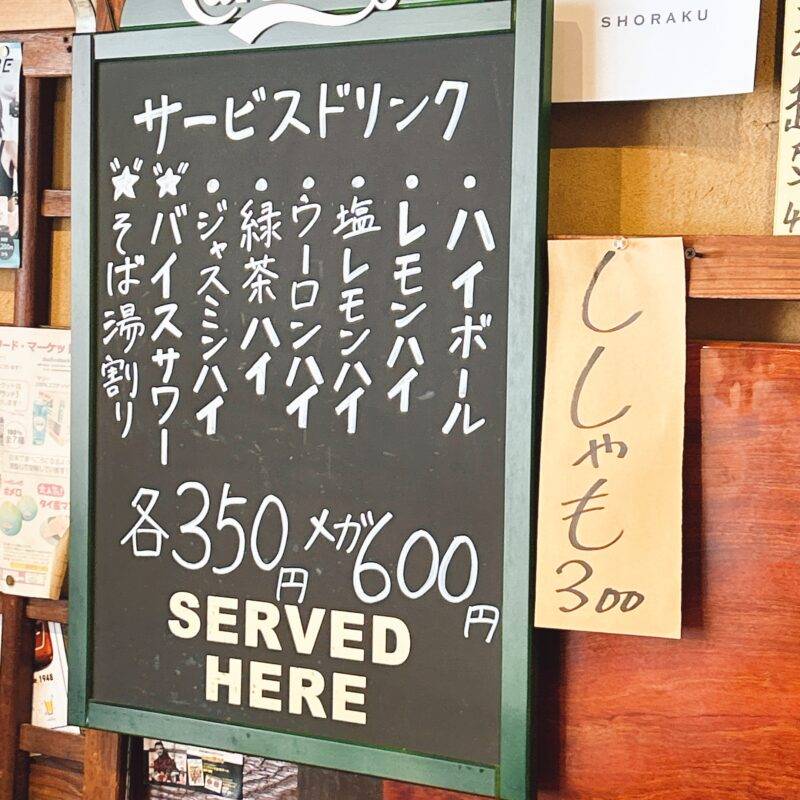 サービスドリンク
・ハイボール
・レモンハイ
・塩レモンハイ
・ウーロンハイ
・緑茶ハイ
・ジャスミンハイ
★バイスサワー
★そば湯割り
各350円 メガ600円
SERVED
HERE
SHORAKU
ししゃも
300